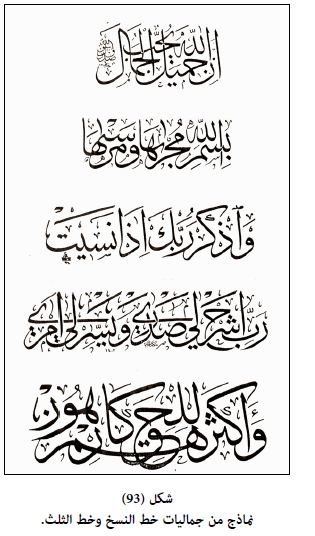 ان الله جميل يحب الجمال
بسم الله مجراها ومرساها
واذكر ربك اذا نسيت
رب اشرح لي صدري ويسر لي امري
وأكثرهم للحق كارهون
شكل (93)
نماذج من جماليات خط النسخ وخط الثلث.